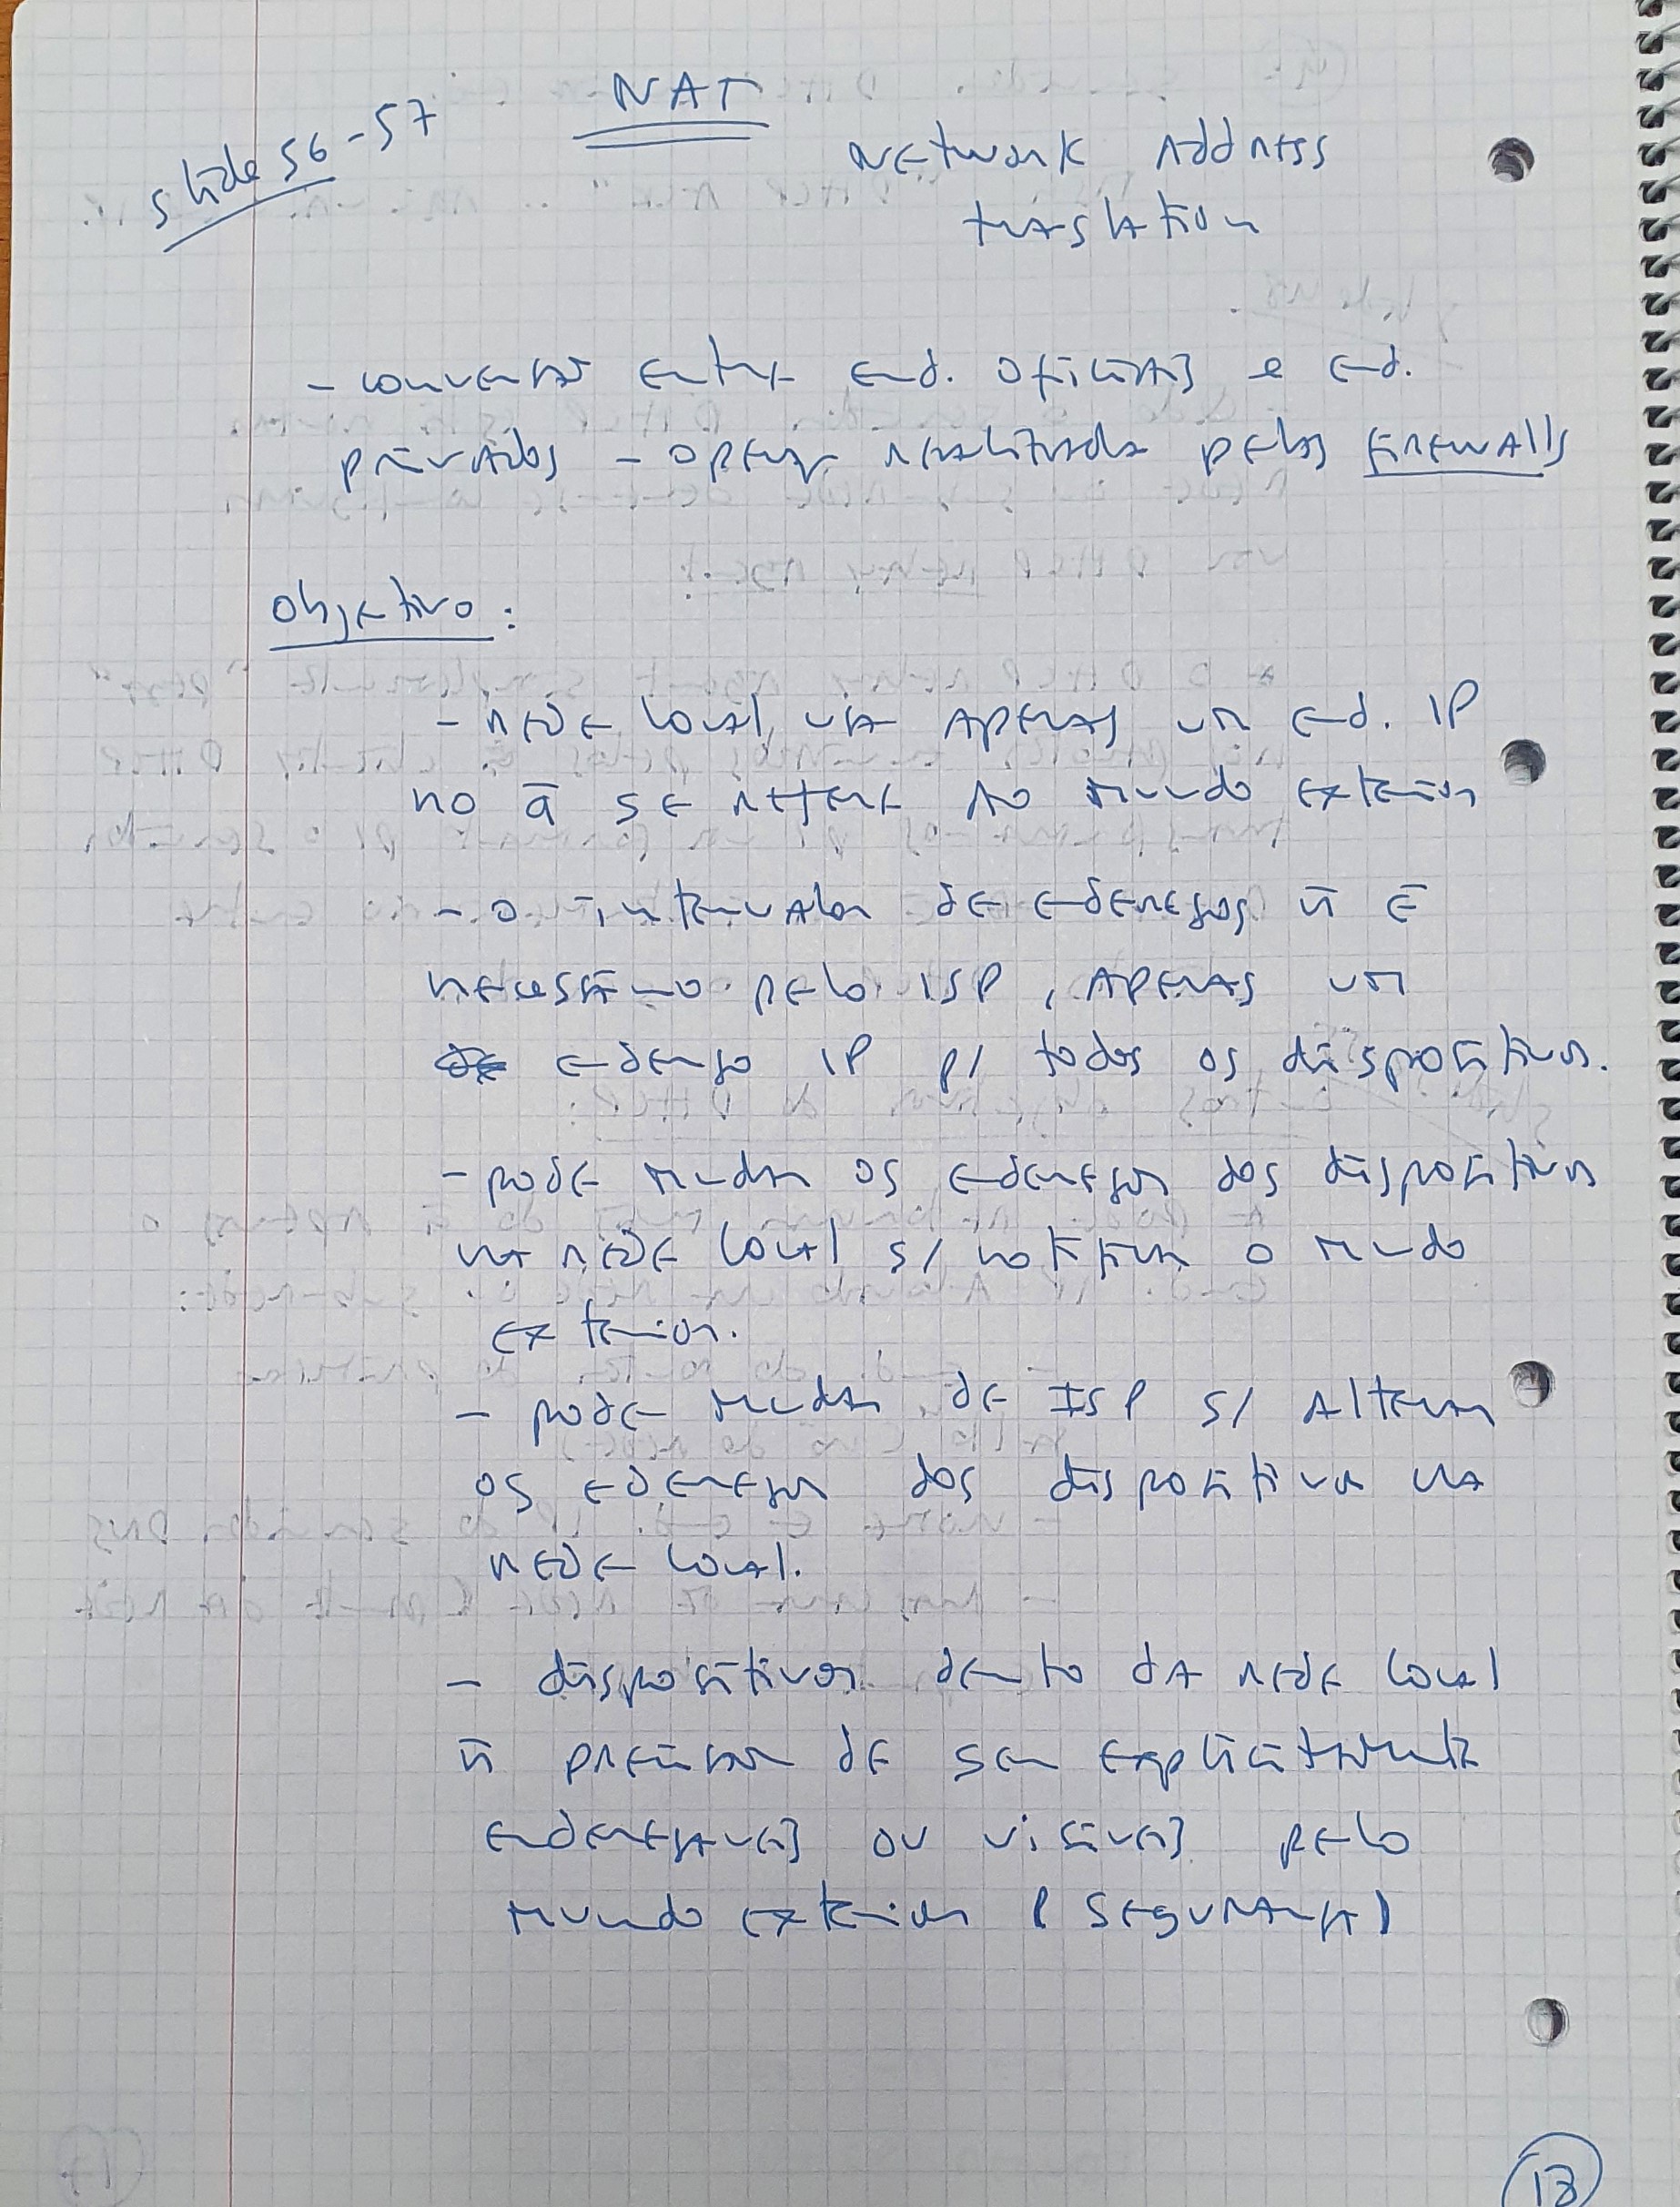 slide 56-57
NAT
Network Address
Traslation
- conversão entre end. oficiais e end.
privados - operaç. realizada pelas firewalls
Objetivo:
- rede local usa apenas um end. IP
no q̄ se refere ao mundo exterior
- o intervalor de edereços ñ é
necessário pelo ISP, apenas um
edereço IP p/ todos os dispositivos.
- pode mudar os edereços dos dispositivos
na rede local s/ notificar o mundo
exterior.
- pode mudar de ISP s/ alterar
os edereços dos dispositivos na
rede local.
- dispositivos dento da rede local
ñ precisam de ser explicitamente
endereçáveis ou visíveis pelo
mundo exterior (segurança)